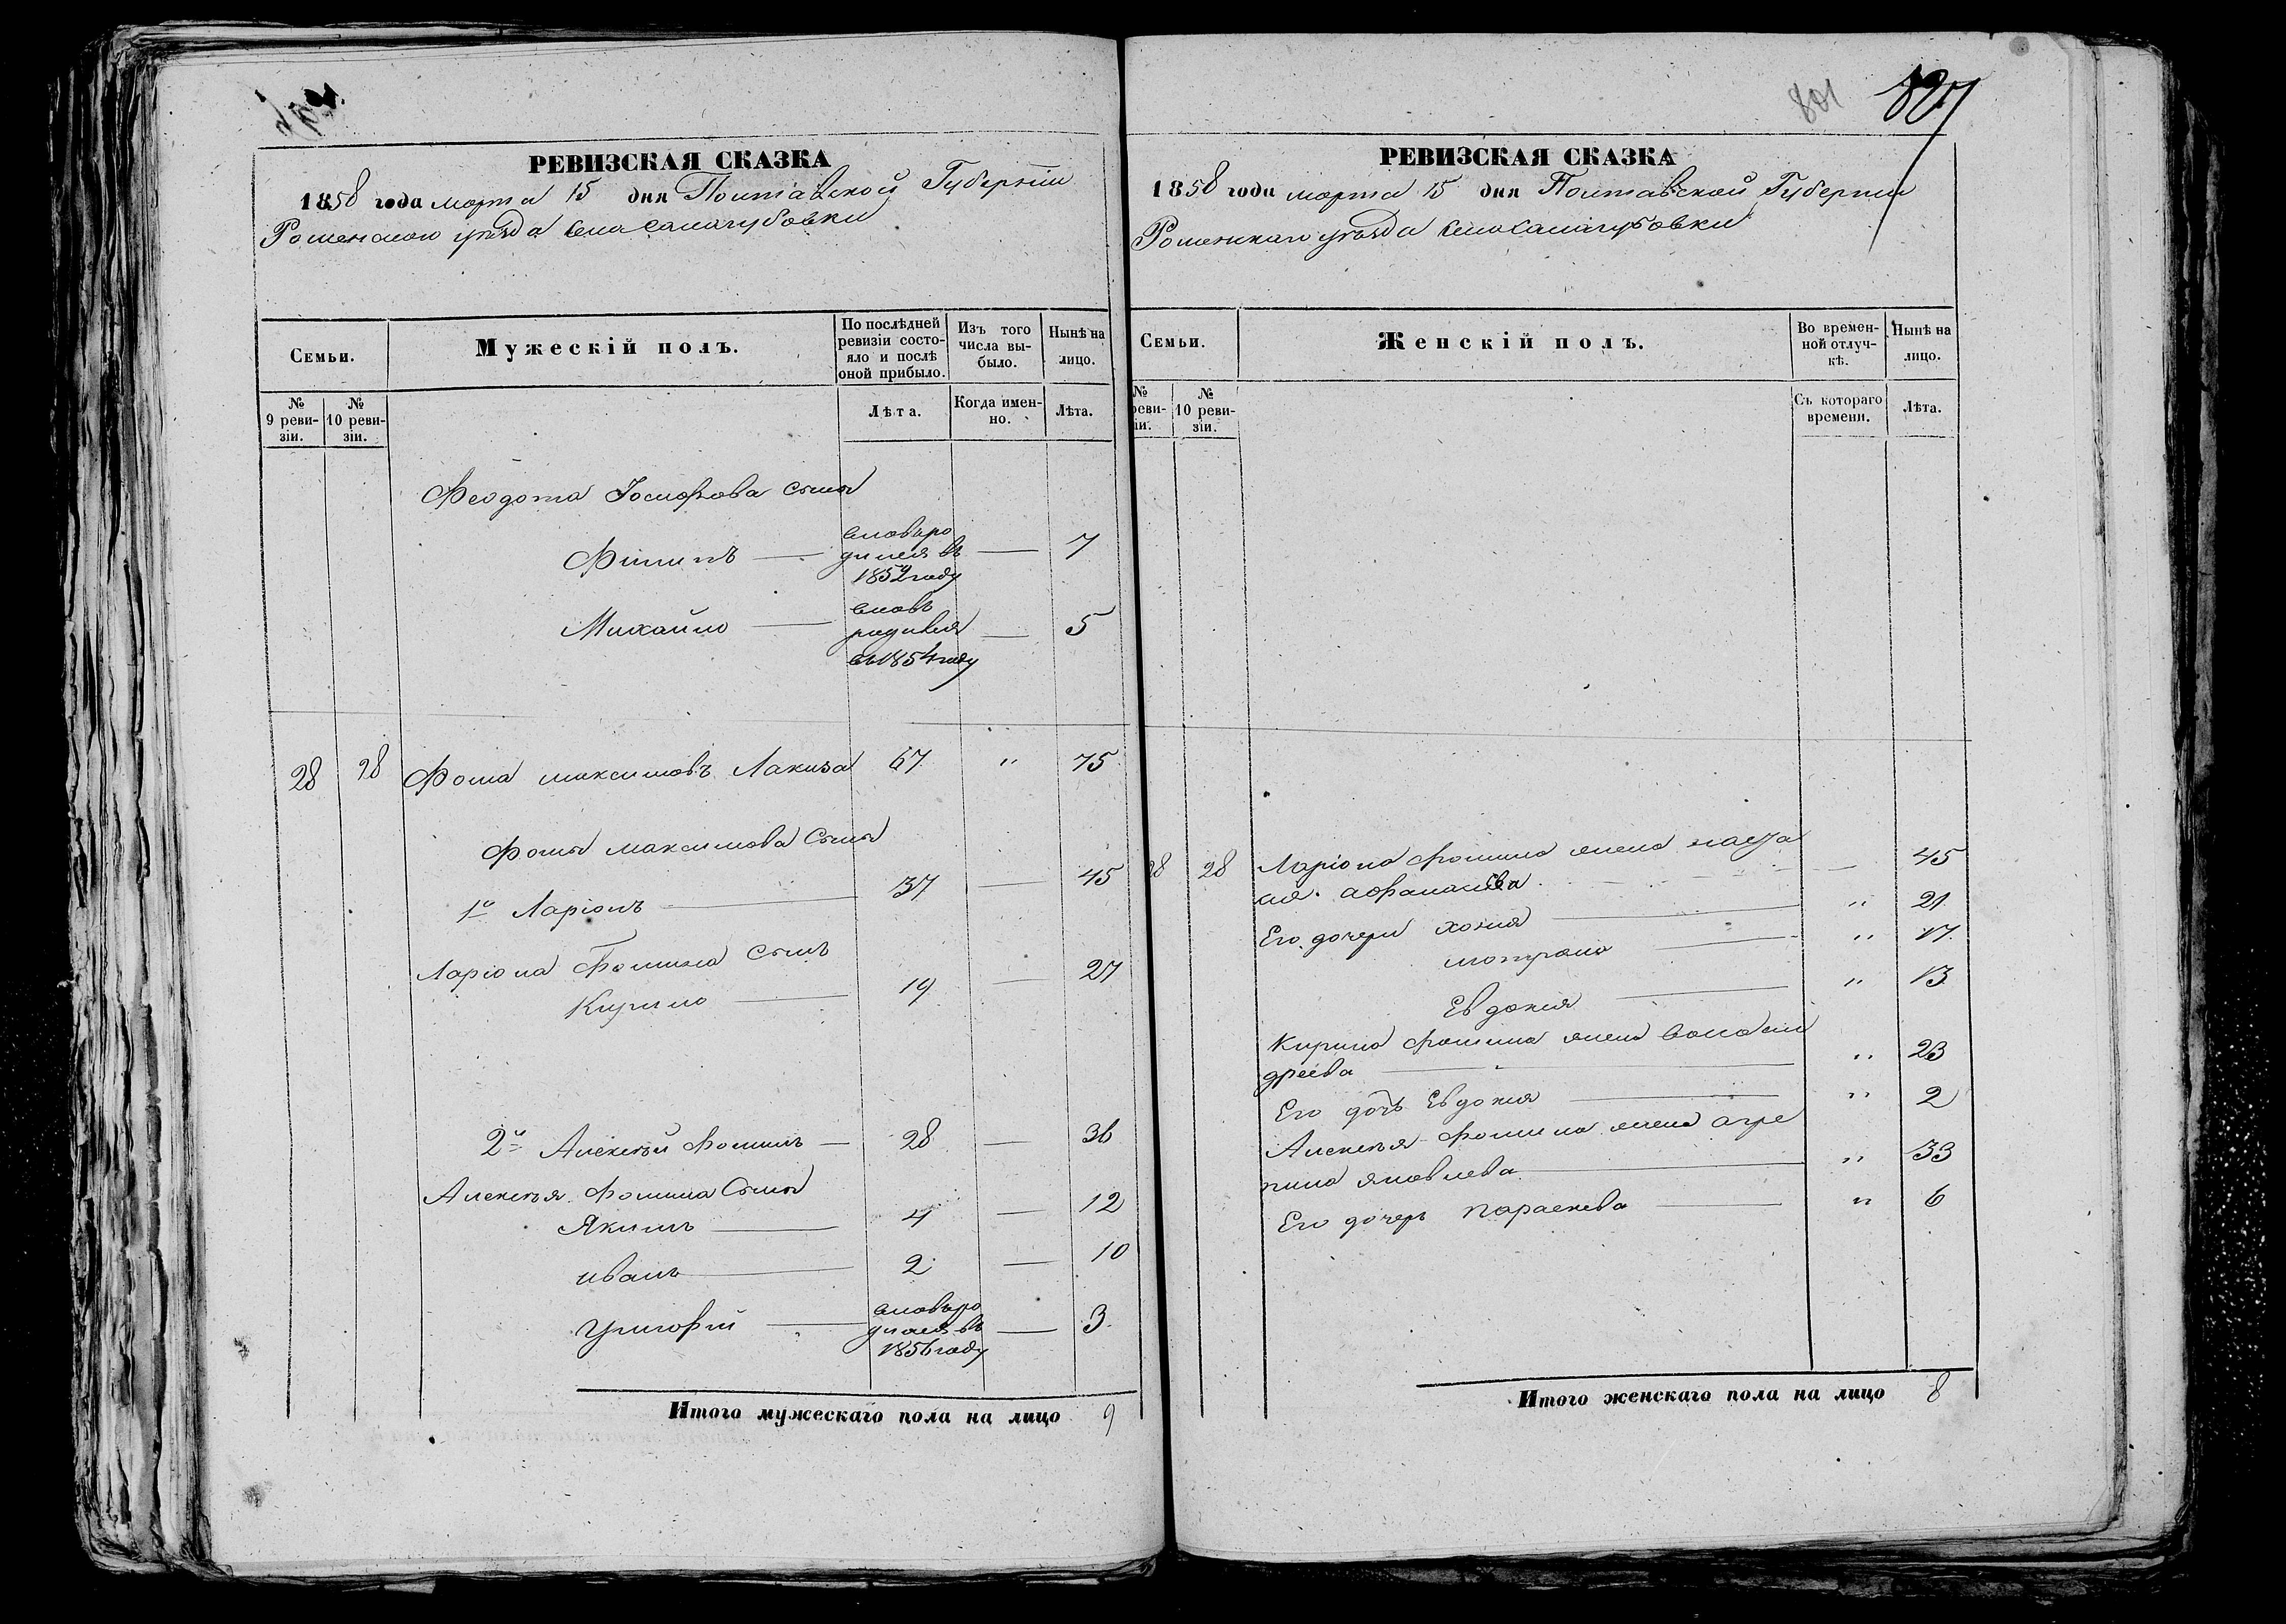 РЕВИЗСКАЯ СКАЗКА
1858 года марта 15 дня Полтавской Губерніи
Роменскаго уѣзда села Салогубовки
Семьи.
Мужескій полъ.
По послѣдней ревизіи состояло и послѣ оной прибыло.
Изъ того числа выбыло.
Нынѣ на лицо.
№ 9 ревизіи.
№ 10 ревизіи.
Лѣта.
Когда именно.
Лѣта.
Феодота Іосифова сыны
Филипъ — вновь ро
дился въ — 7
1852 году
Михайло — вновь
родился — 5
въ 1854 году
28 28 Фома Максимовъ Лакиза 67 " 75
Фомы Максимова Сыны
1й Ларіонъ — 37 — 45
Ларіона Фомина Сынъ
Кирило — 19 — 27
2й Алексѣй Фоминъ — 28 — 36
Алексѣя Фомина Сыны
Якимъ — 4 — 12
иванъ — 2 — 10
Григорій — вновь ро
дился въ — 3
1856 году
Итого мужескаго пола на лицо 9
801 827
РЕВИЗСКАЯ СКАЗКА
1858 года марта 15 дня Полтавской Губерніи
Роменскаго уѣзда села Салогубовки
Семьи.
Женскій полъ.
Во временной отлучкѣ.
Нынѣ на лицо.
№ реви-
іи.
№ 10 ревизіи.
Съ котораго времени.
Лѣта.
28 28 Ларіона Фомина жена наста
сія афанасіева — 45
Его дочери хотия — " 21
мотрона — " 17
Евдокия — " 13
Кирила фомина жена
дреева — " 23
Его дочь Евдокия — " 2
Алексѣя Фомина жена агре
пина яковлева — " 33
Его дочерь параскева — " 6
Итого женскаго пола на лицо 8